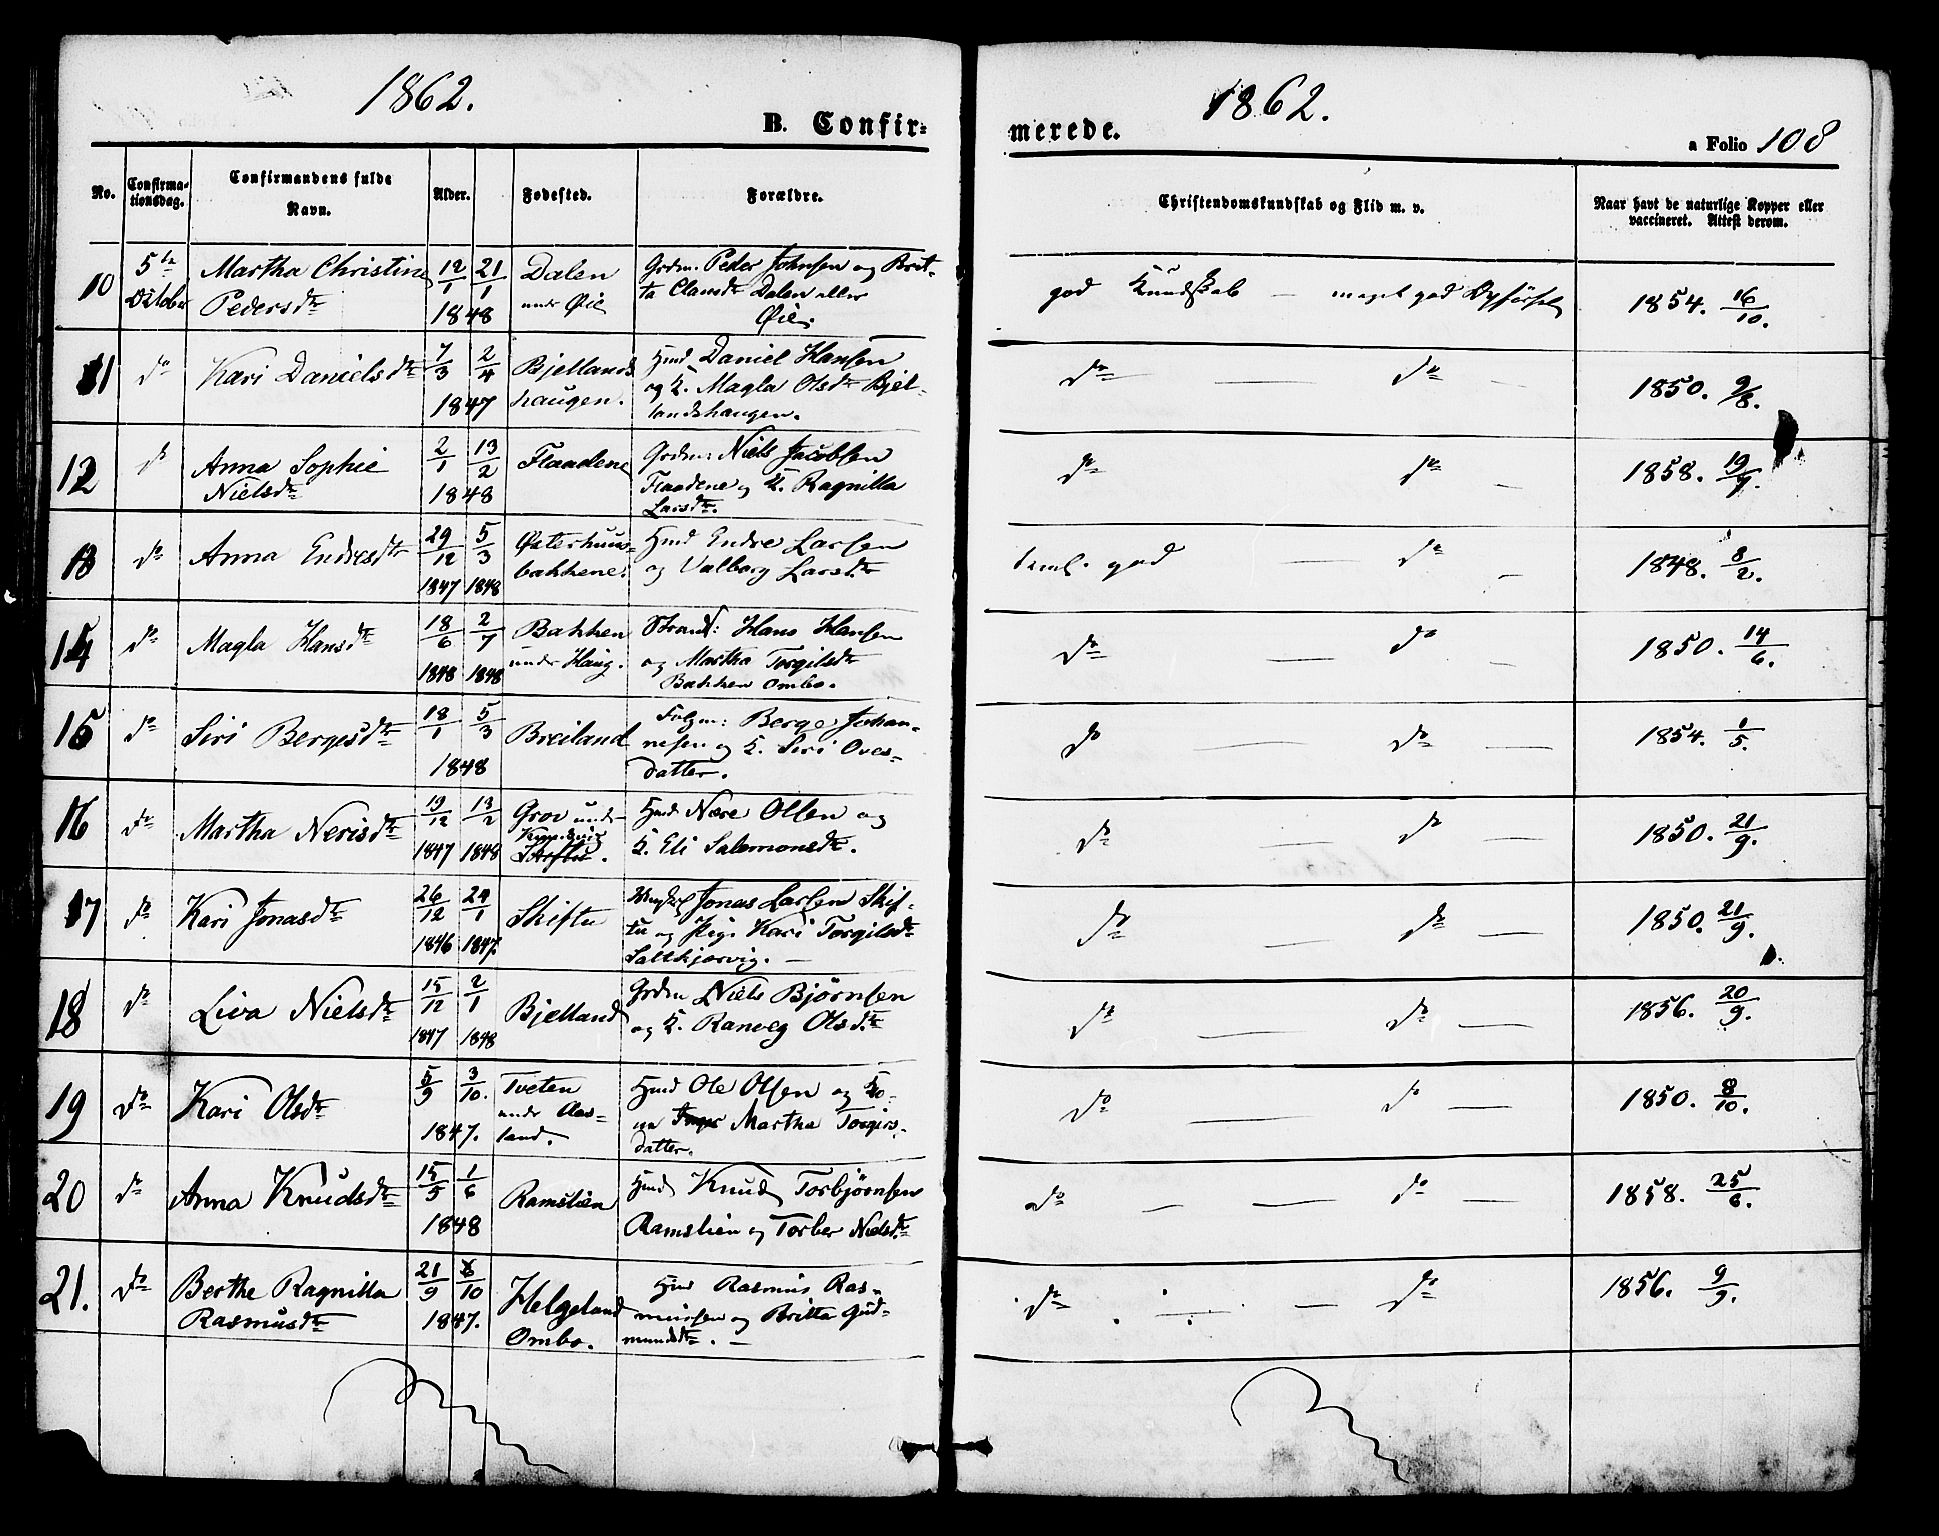 1862.
B. Confir-
No.
Confirma-
tionsdag.
Confirmandens fulde
Navn.
Alder.
Fødested.
Forældre.
10
5te
October
Martha Christine
Pedersdtr
12/1 21/1
1848
Dalen
under Øie
Grdm. Peder Johnsen og Brit-
ta Clausdtr Dalen eller
Øie.
11
do
Kari Danielsdtr
7/3 2/4
1847
Bjellands
haugen.
Hmd Daniel Hansen
og K. Magla Olsdtr Bjel-
landshaugen.
12
do
Anna Sophie
Nielsdtr
2/1 13/2
1848
Flaadene
Grdm. Niels Jacobsen
Flaadene og K. Ragnilla
Larsdtr.
13
do
Anna Endresdtr
29/12 5/3
1847 1848
Østerhuus-
bakkene.
Hmd Endre Larsen
og Valborg Larsdtr
14
do
Magla Hansdtr
18/6 2/7
1848 1848
Bakken
under Haug.
Strand: Hans Hansen
og Martha Torgilsdtr
Bakken Ombo.
15
do
Siri Bergesdtr
18/1 5/3
1848
Breiland
Berge Johan-
nesen og K. Siri Oves-
datter.
16
do
Martha Nerisdtr
19/12 13/2
1847 1848
Grov under
Hmd Nære Olsen og
K. Eli Salomonsdtr.
17
do
Kari Jonasdtr
26/12 24/1
1846 1847.
Skiftu
Ungkarl Jonas Larsen Skif-
tu og Pige Kari Torgilsdtr
Saltkjærvig. —
18
do
Liva Nielsdtr
15/12 2/1
1847 1848
Bjelland
Grdm Niels Bjørnsen
og K. Ranveg Olsdtr.
19
do
Kari Olsdtr
5/9 3/10.
1847.
Tveten
under Aas-
land.
Hmd Ole Olsen og Ko-
ne Martha Torgirs-
datter.
20
do
Anna Knudsdtr
15/5 1/6
1848
Ramslien
Hmd Knud Torbjørnsen
Ramslien og Torber Nielsdtr.
21.
do
Berthe Ragnilla
Rasmusdtr
21/9 /10
1847.
Helgeland
Ombo.
Hmd Rasmus Ras-
mussen og Britta Gud-
mundsdtr. —
1862.
merede.
a Folio 108
Christendomskundskab og Flid m. v.
Naar havt de naturlige Kopper eller
vaccineret. Attest derom.
god Kundskab — meget god Opførsel
1854. 16/10.
do — do —
1850. 9/8.
do — do —
1858. 19/7.
teml. god — do —
1848. 8/2.
do — do —
1850. 14/6.
do — do —
1854. 1/5.
do — do —
1850. 21/9.
do — do —
1850. 21/9.
do — do —
1856. 20/9.
do — do —
1850. 8/10.
do — — do —
1858. 25/6.
do — — do —
1856. 9/9.